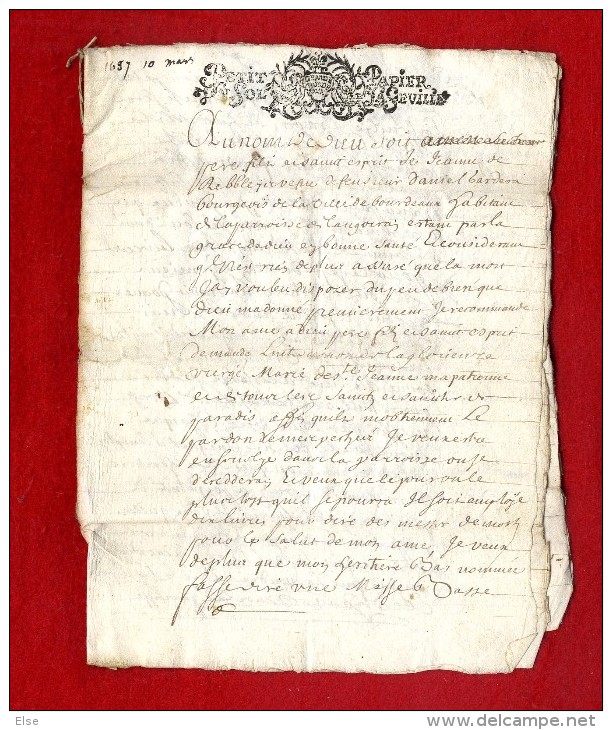 1697 10 mars
PETIT PAPIER
UN SOL LA FEUILLE
Au nom de dieu soit
pere filz et saint esprit Je Jeanne de
veuve de feu sieur daniel bardera
bourgeois de la ville de bourdeaux habitant
la parroisse de langoiran estant par la
grace de dieu en bonne santé et considerant
quil nest rien de plus assuré que la mort
Jay vouleu disposer du peu de bien que
dieu ma donné premierement Je recommande
Mon ame a dieu pere filz et saint esprit
demande de la glorieuze
vierge Marie de ste Jeanne ma patronne
et de tous les saints et saintes de
paradis affin quilz mobtienent le
pardon de mes pechés Je veux estre
ensevelye dans la parroisse
et veux que le jour ou le
plus tost quil se pourra Il soit employé
dix livres pour dire des messes de mort
pour le salut de mon ame Je veux
de plus que mon heritiere bas nommée
fasse dire une Messe basse
Else
www.delcampe.net